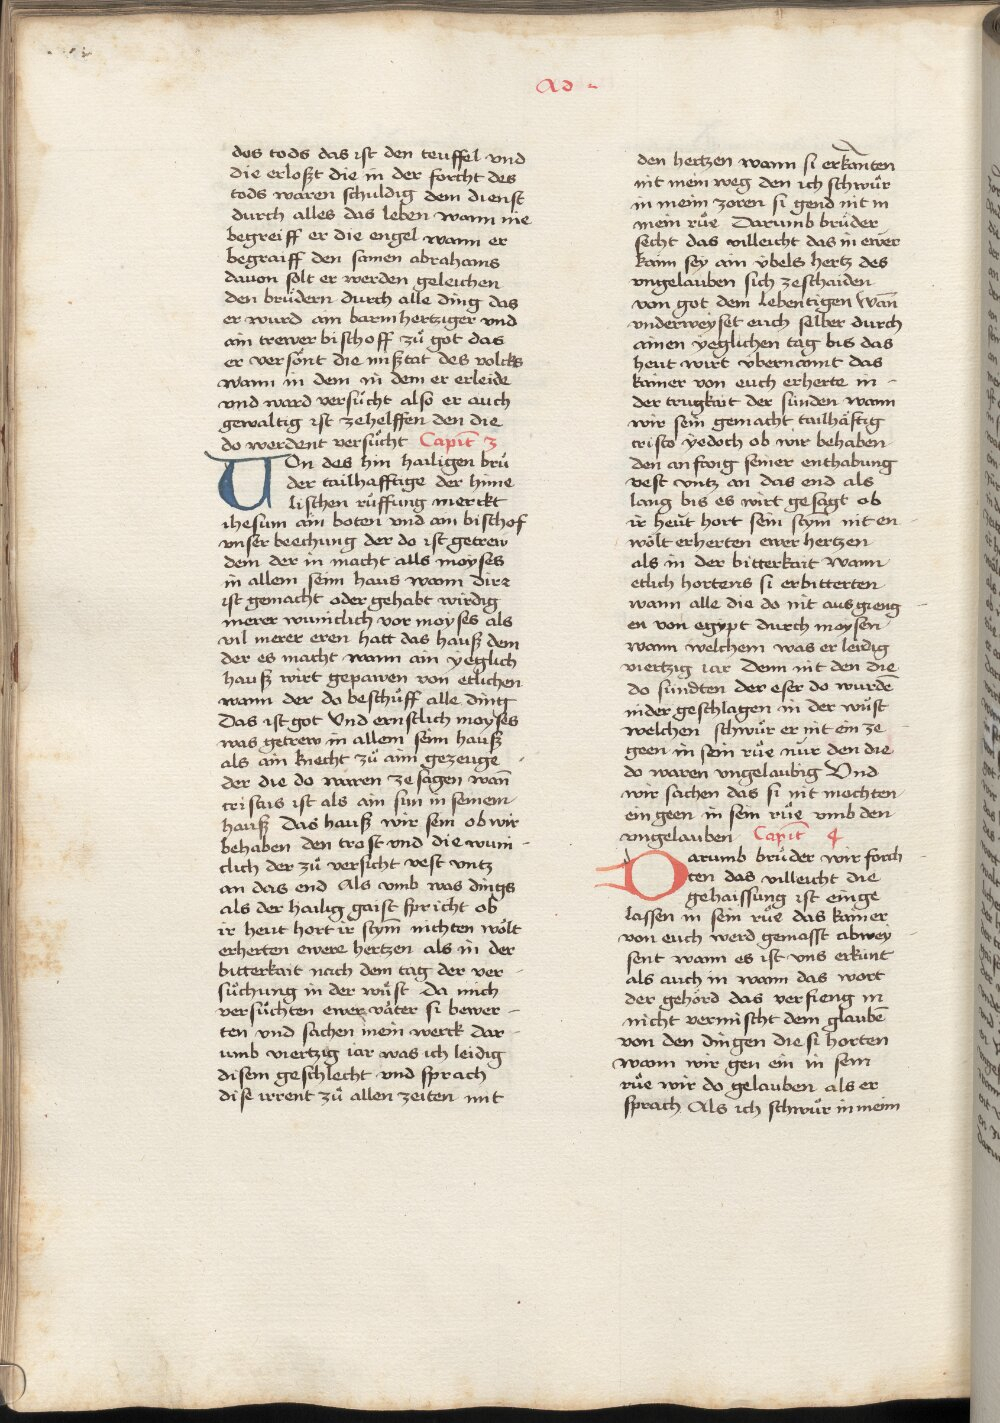 Ad
des tods das ist den teuffel vnd
die erloßt die in der forcht des
tods waren schuldig dem dienst
durch alles das leben wann nie
begreiff er die engel wann er
begraiff den samen abrahams
dauon solt er werden geleichen
den brüdern durch alle ding das
er wurd ain barmhertziger vnd
ain trewer bischoff zů got das
er versönt die mißtat des volcks
wann in dem in dem er erleide
vnd ward versůcht also er auch
gewaltig ist zehelffen den die
do werdent versůcht Capit̄ 3
Von des hin hailigen brü
der tailhafftige der hime
lischen rüffung merckt
ihesum ain boten vnd ain bischof
vnser beechung der do ist getrew
dem der in macht alls moyses
in allem seim haus wann dirr
ist gemacht oder gehabt wirdig
merer wunīclich vor moyses als
vil merer eren hatt das hauß dem
der es macht wann ain yeglich
hauß wirt gepawen von etlichen
wann der do beschůff alle ding
Das ist got Vnd ernstlich moyses
was getrew in allem seim hauß
als ain knecht zů aim gezeuge
der die do waren zesagen wan̄
cristus ist als ain sun in seinem
hauß Das hauß wir sein ob wir
behaben den trost vnd die wuni
clich der zů versicht vest vntz
an das end Als vmb was dings
als der hailig gaist spricht ob
ir heut hort ir stym̄ nichten wölt
erherten ewere hertzen als in der
bitterkait nach dem tag der ver
sůchung in der wůst Da mich
versůchten ewer väter si bewer
ten vnd sachen mein werck dar
umb viertzig iar was ich leidig
disem geschlecht vnd sprach
dise irrent zů allen zeiten mit
den hertzen wann si erkanten
nit mein weg den ich schwůr
in meim zoren si gend nit in
mein růe Darumb brüder
secht das villeicht das in ewer
kaim sey ain übels hertz des
vngelauben sich zeschaiden
von got dem lebentigen Wan̄
vnderweyset euch selber durch
ainen yeglichen tag bis das
heut wirt übernannt das
kainer von euch erherte in
der trugkait der sünden wann
wir sein gemacht tailhäftig
cristo yedoch ob wir behaben
den anfang seiner enthabung
vest vntz an das end als
lang bis es wirt gesagt ob
ir heüt hort sein stym nit en
wölt erherten ewer hertzen
als in der bitterkait Wann
etlich hortens si erbitterten
wann alle die do nit ausgieng
en von egypt durch moysen
wann welchem was er leidig
viertzig iar Denn nit den die
do sündten der eser do wurdē
nider geschlagen in der wůst
welchen schwůr er nit ein ze
geen in sein růe nůr den die
do waren vngelaubig Vnd
wir sachen das si nit mochten
ein geen in sein růe vmb den
vngelauben Capit̄ 4
Darumb brüder wir forch
ten das villeicht die
gehaissung ist einge
lassen in sein růe das kainer
von euch werd gemasst abwey
sent wann es ist vns erkunt
als auch in wann das wort
der gehörd das verfieng in
nicht vermischt dem glaubē
von den dingen die si horten
wann wir gen ein in sein
růe wir do gelauben als er
sprach Als ich schwůr in meim